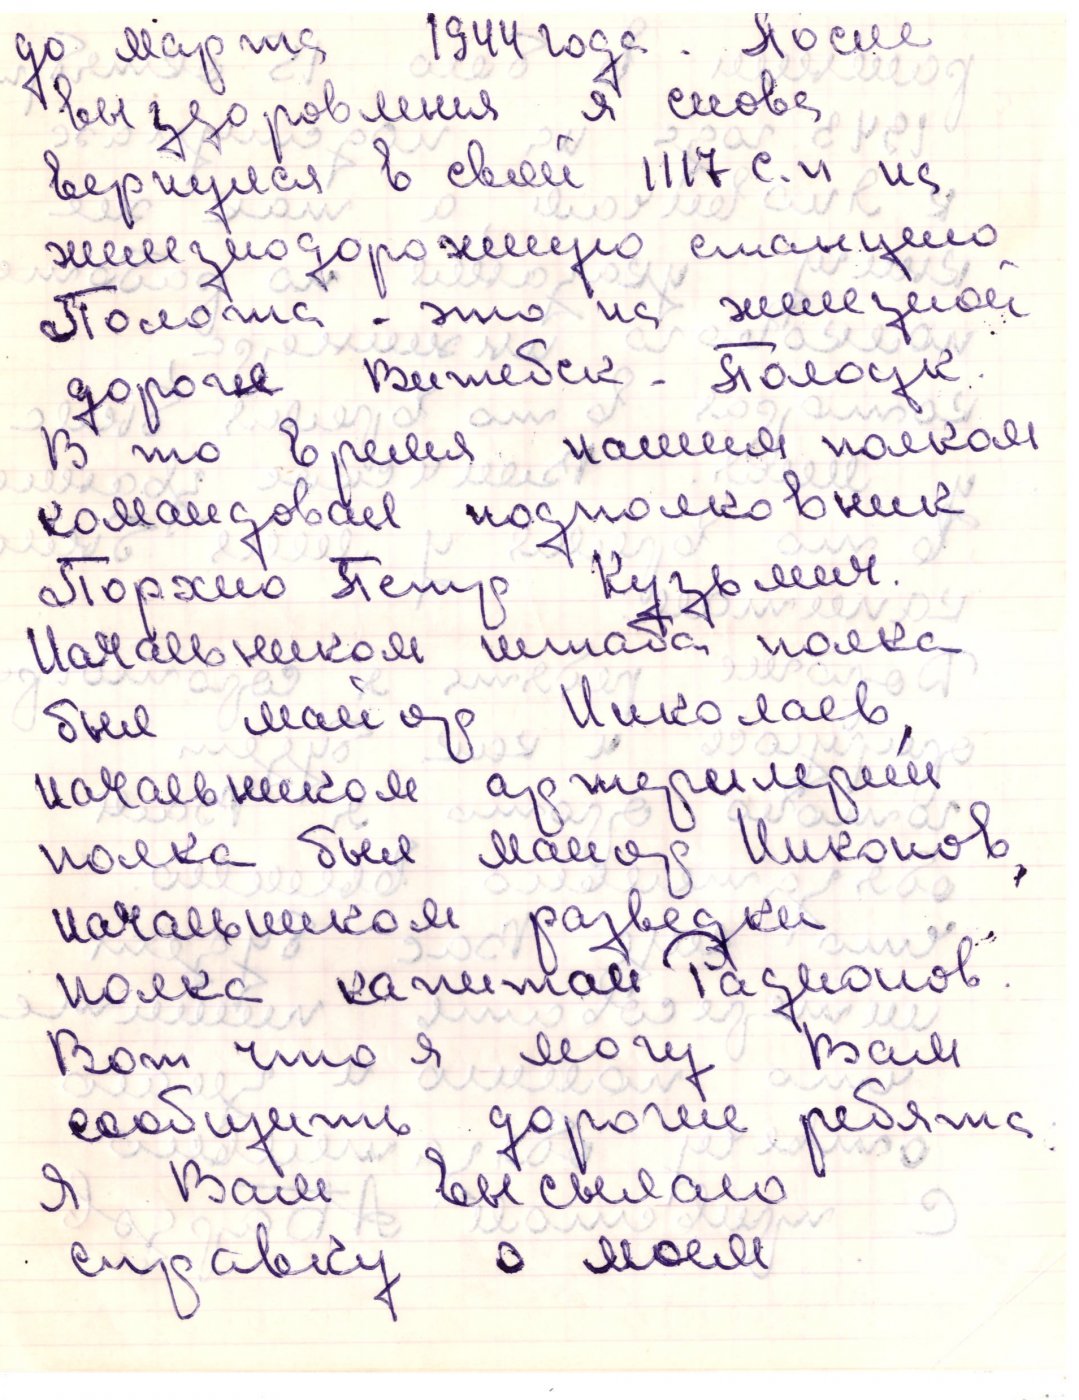 до марта 1944 года. После
выздоровления я снова
вернулся в свой 1117 с.п на
железнодорожную станцию
Полота - это на железной
дороге Витебск - Полоцк.
В то время нашим полком
командовал подполковник
Порхно Петр Кузьмич.
Начальником штаба полка
был майор Николаев,
начальником артерилерии
полка был майор Никонов,
начальником разведки
полка капитан Радионов.
Вот что я могу Вам
сообщить дорогие ребята.
Я Вам высылаю
справку о моем